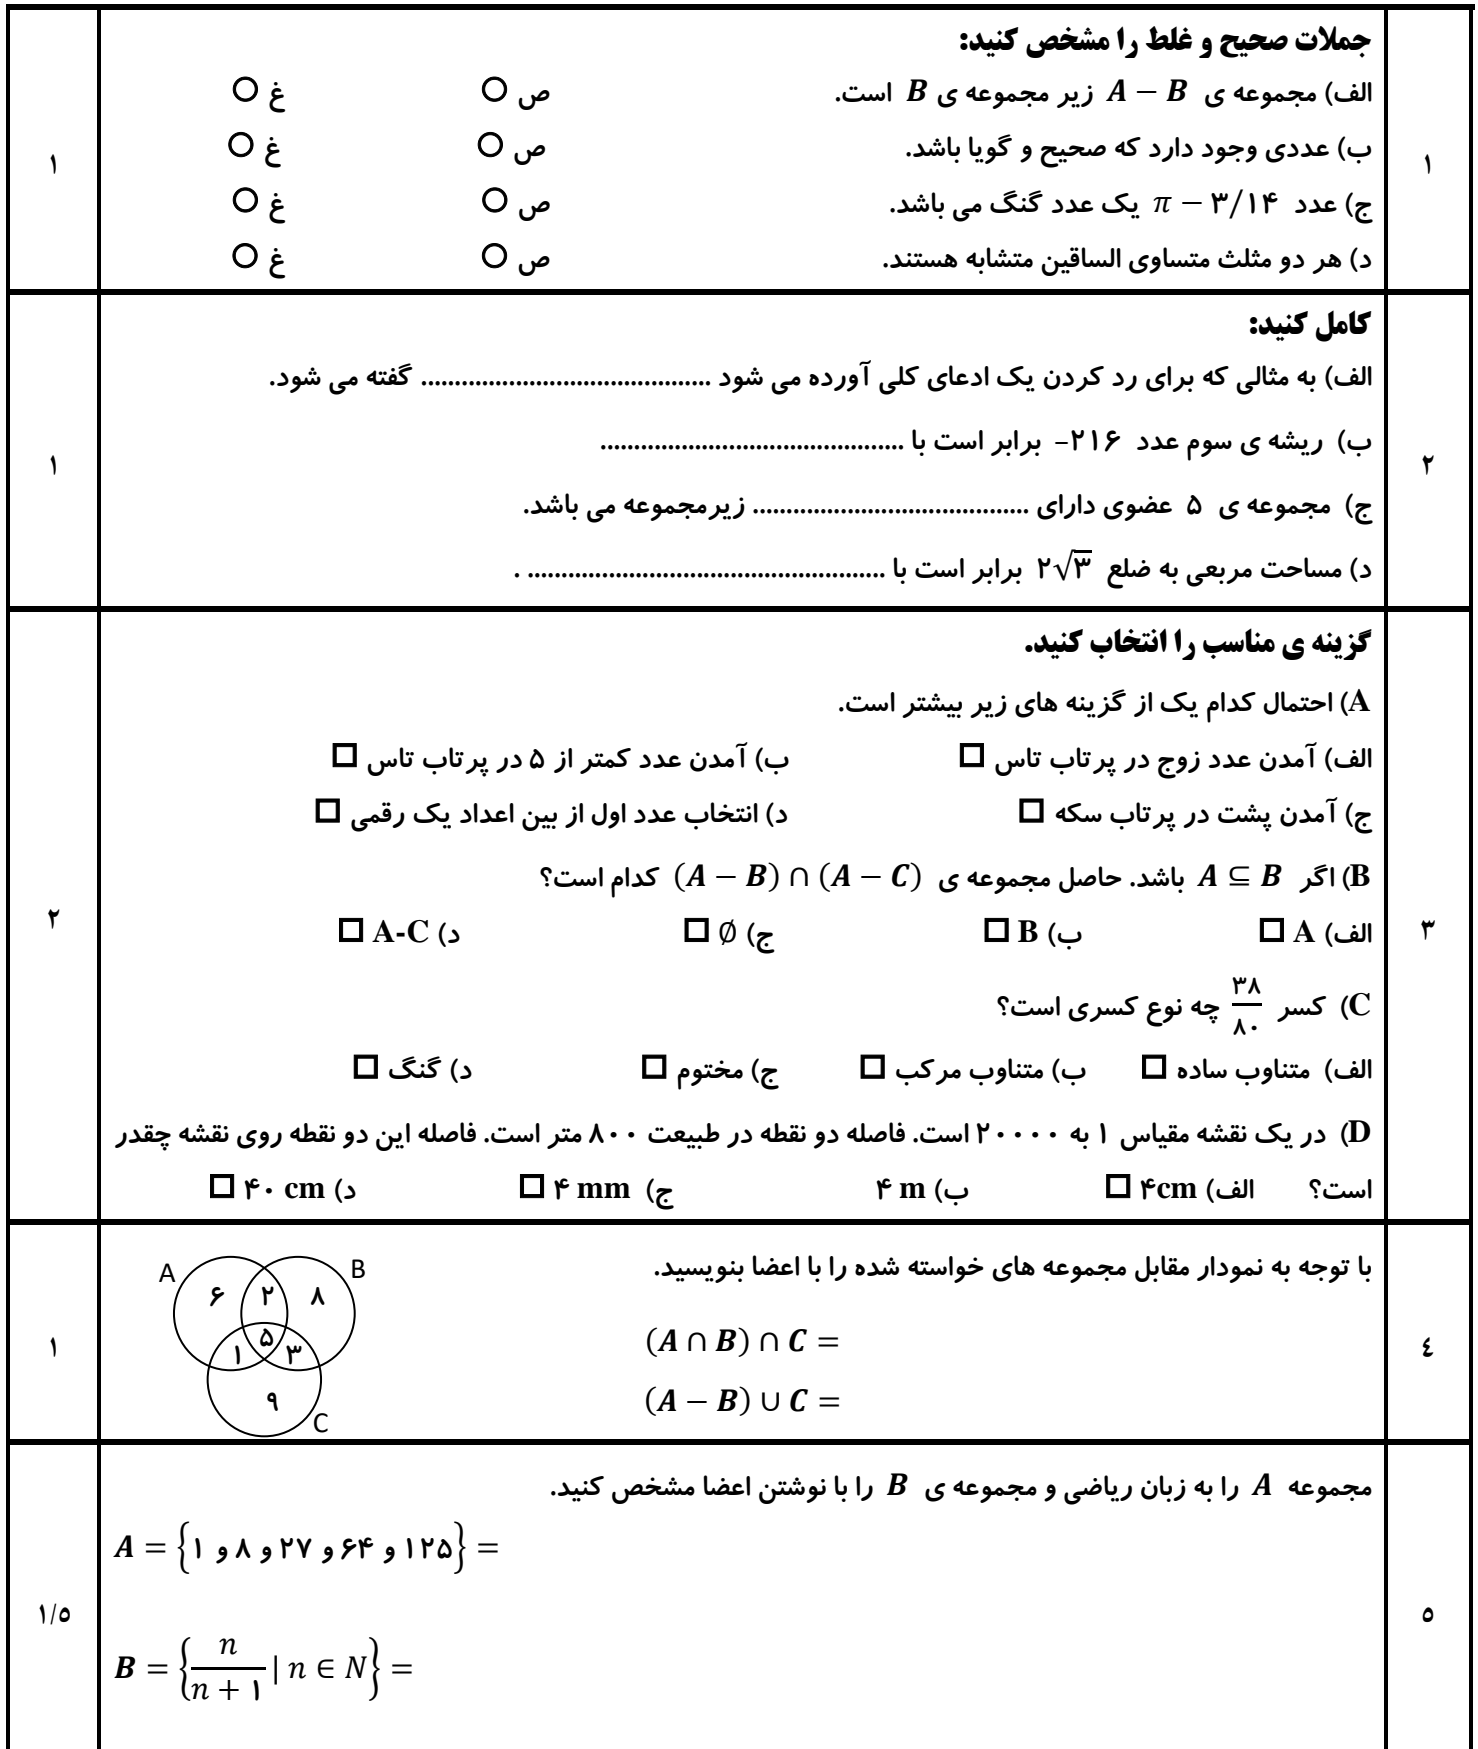 ۱
جملات صحیح و غلط را مشخص کنید:
الف) مجموعه ی A − B زیر مجموعه ی B است. ص غ
ب) عددی وجود دارد که صحیح و گویا باشد. ص غ
ج) عدد π − ۳/۱۴ یک عدد گنگ می باشد. ص غ
د) هر دو مثلث متساوی الساقین متشابه هستند. ص غ
۱
۲
کامل کنید:
الف) به مثالی که برای رد کردن یک ادعای کلی آورده می شود ........................................... گفته می شود.
ب) ریشه ی سوم عدد ۲۱۶− برابر است با .............................................
ج) مجموعه ی ۵ عضوی دارای ......................................... زیرمجموعه می باشد.
د) مساحت مربعی به ضلع ۲√۳ برابر است با ..................................................... .
۱
۳
گزینه ی مناسب را انتخاب کنید.
A) احتمال کدام یک از گزینه های زیر بیشتر است.
الف) آمدن عدد زوج در پرتاب تاس □ ب) آمدن عدد کمتر از ۵ در پرتاب تاس □
ج) آمدن پشت در پرتاب سکه □ د) انتخاب عدد اول از بین اعداد یک رقمی □
B) اگر A ⊆ B باشد. حاصل مجموعه ی (A − B) ∩ (A − C) کدام است؟
الف) A □ ب) B □ ج) ∅ □ د) A-C □
C) کسر ۳۸/۸۰ چه نوع کسری است؟
الف) متناوب ساده □ ب) متناوب مرکب □ ج) مختوم □ د) گنگ □
D) در یک نقشه مقیاس ۱ به ۲۰۰۰۰ است. فاصله دو نقطه در طبیعت ۸۰۰ متر است. فاصله این دو نقطه روی نقشه چقدر
است؟ الف) ۴cm □ ب) ۴ m ج) ۴ mm □ د) ۴۰ cm □
۲
٤
با توجه به نمودار مقابل مجموعه های خواسته شده را با اعضا بنویسید.
(A ∩ B) ∩ C =
(A − B) ∪ C =
A B
۶ ۲ ۸
۵
۱ ۳
۹
C
۱
٥
مجموعه A را به زبان ریاضی و مجموعه ی B را با نوشتن اعضا مشخص کنید.
A = {۱ و ۸ و ۲۷ و ۶۴ و ۱۲۵} =
B = {n/(n + ۱) | n ∈ N} =
۱/٥